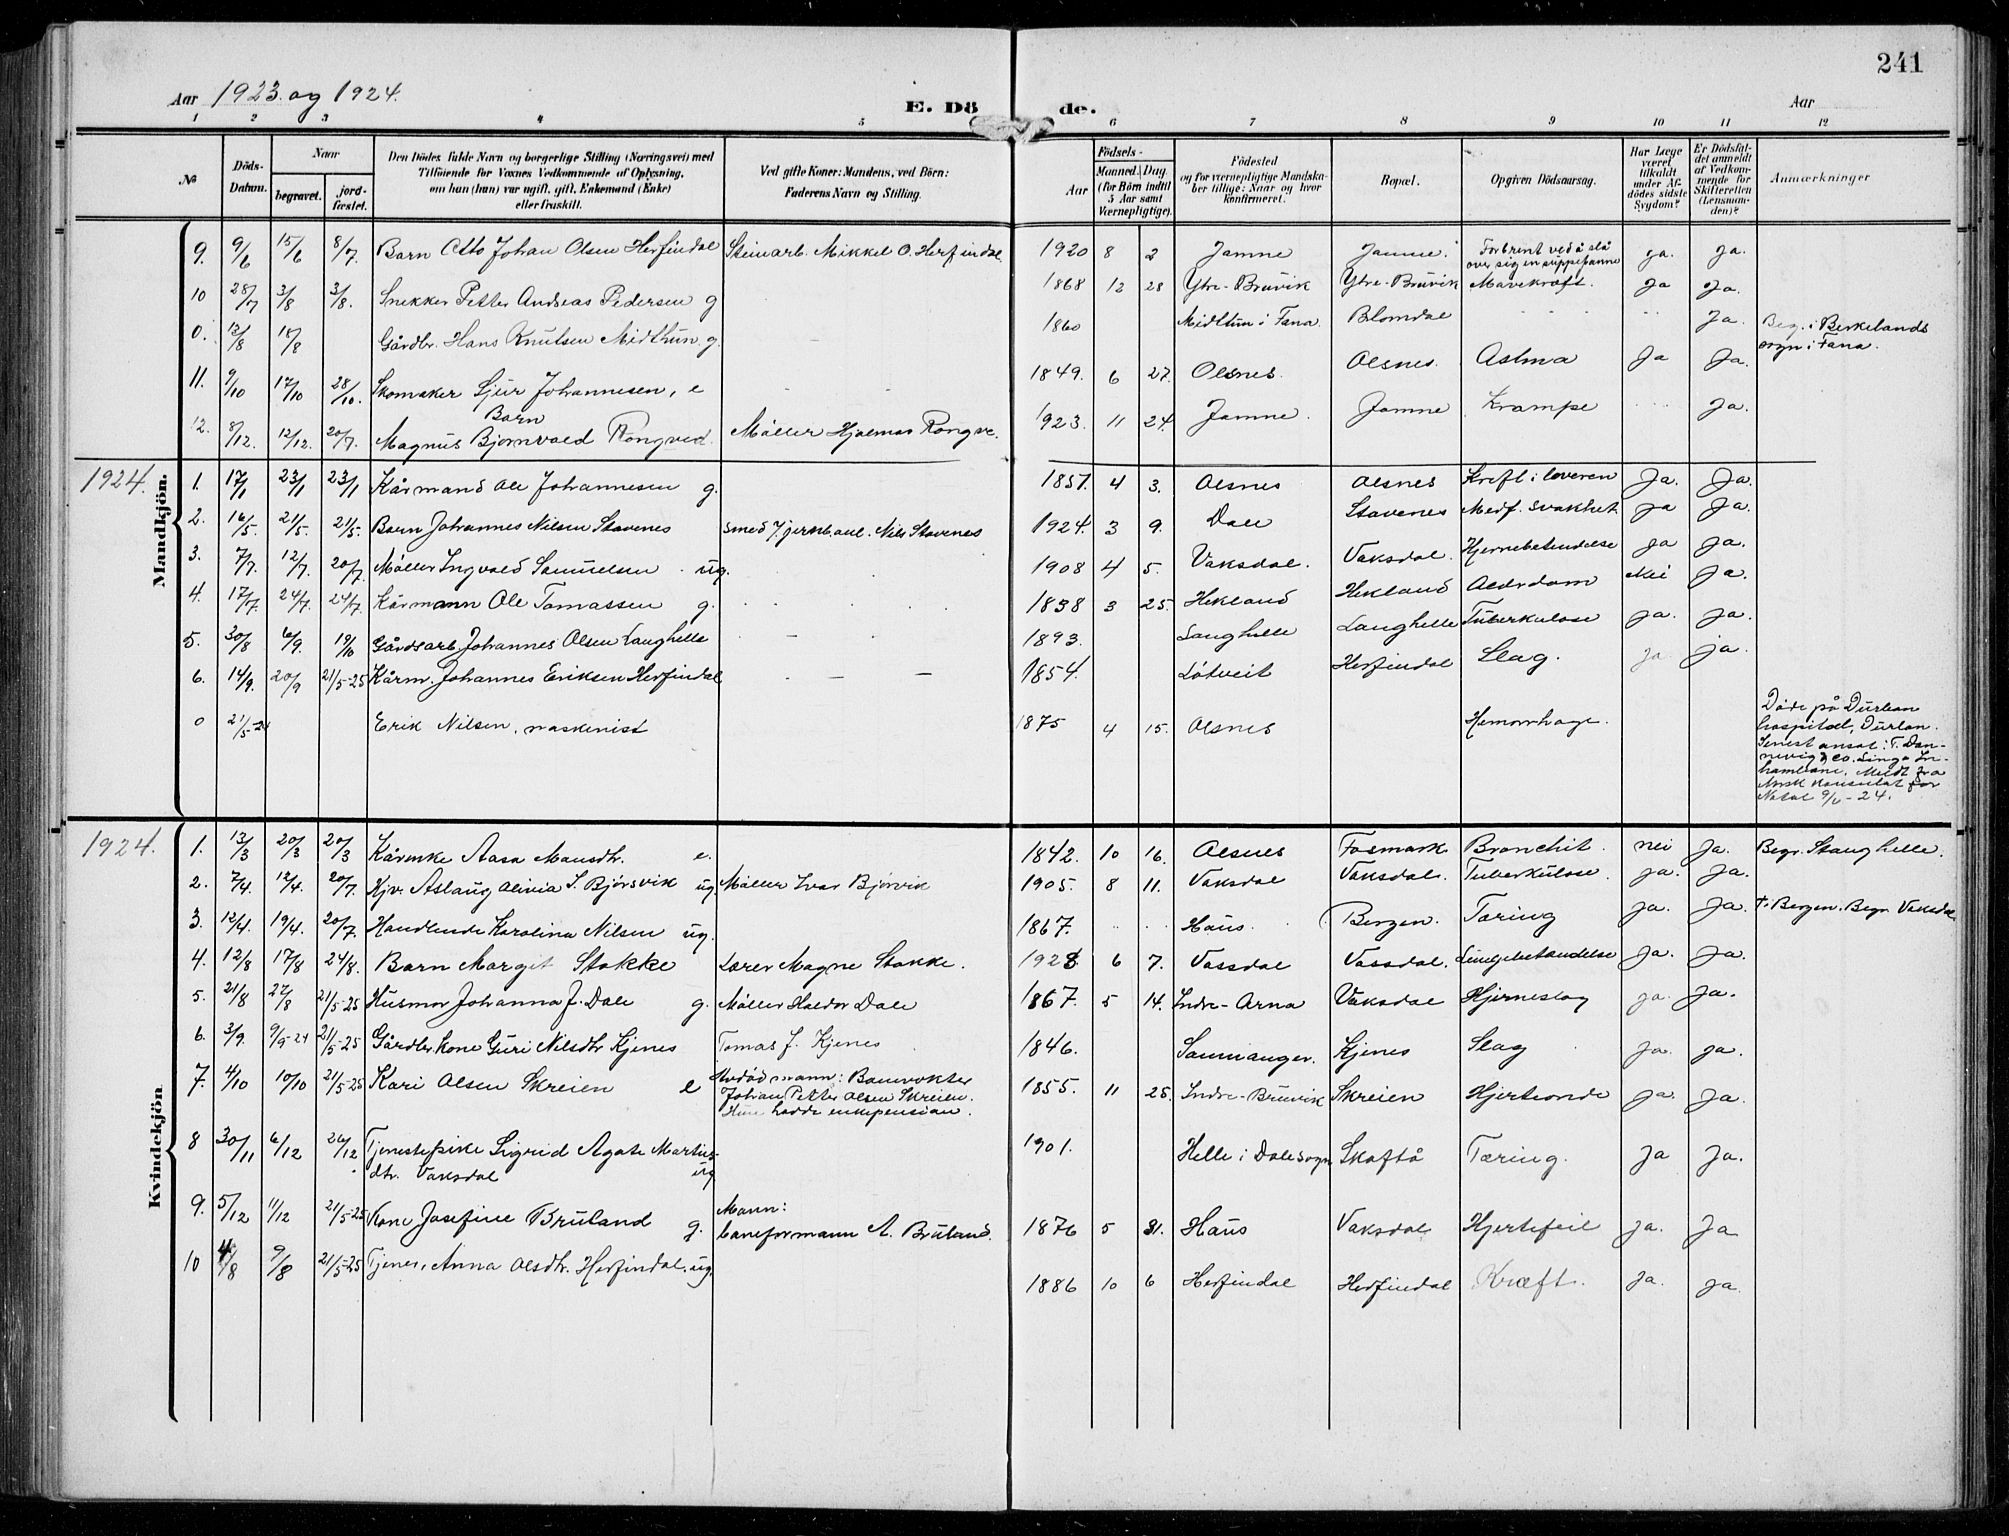 241
Aar 1923 og 1924.
E. Dö de.
Aar
1 2 3 4 5 6 7 8 9 10 11 12
№
Döds-Datum.
Naar
begravet.
jord-fæstet.
Den Dödes fulde Navn og borgerlige Stilling (Næringsvei) med Tilföiende for Voxnes Vedkommende af Oplysning, om han (hun) var ugift, gift, Enkemand (Enke) eller fraskilt.
Ved gifte Koner: Mandens, ved Börn: Faderens Navn og Stilling.
Födsels-
Aar
Maaned. Dag.
(for Börn indtil 5 Aar samt Værnepligtige).
Födested og for værnepligtige Mandskaber tillige: Naar og hvor konfirmeret.
Bopæl.
Opgiven Dödsaarsag.
Har Læge været tilkaldt under Afdödes sidste Sygdom?
Er Dödsfaldet anmeldt af Vedkommende for Skifteretten (Lensmanden)?
Anmærkninger
9. 9/6 15/6 8/7. Barn Otto Johan Olsen Herfindal Steinarb. Mikkel O. Herfindal. 1920 8 2 Jamne Jamne. Forbrent ved å slå over sig en suppepanne ja. ja.
10 28/7 3/8 3/8. Snekker Petter Andreas Pedersen g 1868 12 28 Ytre-Bruvik Ytre-Bruvik Mavekræft. Ja Ja.
0. 13/8 18/8 Gårdbr. Hans Knutsen Midthun. g. 1860 Midttun i Fana. Blomdal Ja. Beg. i Berkelands sogn i Fana.
11. 9/10 17/10 28/10. Skomaker Sjur Johannesen, e 1849. 6 27. Olsnes. Olsnes. Astma Ja Ja.
12. 8/12. 12/12. 20/7. Barn Magnus Bjornvald Rongved. Møller Hjalmar Rongve. 1923. 11 24. Jamne. Jamne Krampe Ja.
Mandkjön.
1924. 1. 17/1 23/1 23/1 Kårmand Ole Johannesen g. 1851. 4 3. Olsnes Olsnes Kreft i leveren Ja. Ja.
2. 16/5. 21/5. 21/5. Barn Johannes Nilsen Stavenes smed v. jernbanl. Nils Stavenes 1924. 3 9. Dale Stavenes Medf. svakhet ja Ja.
3. 7/7. 12/7. 20/7. Møller Ingvald Samuelsen ug. 1908 4 5. Vaksdal. Vaksdal. Hjernebetendelse ja Ja.
4. 17/7. 24/7. 24/7. Kårmann Ole Tomassen g. 1838 3 25. Hekland Hekland Alderdom Nei Ja.
5. 30/8 6/9. 19/10 Gårdsarb. Johannes Olsen Langhelle 1893. Langhelle Langhelle Tuberkulose ja. ja.
6. 14/9. 20/9 21/5-25 Kårm. Johannes Eriksen Herfindal 1854. Løtveit Herfindal Slag. Ja ja.
0 21/5-24 Erik Nilsen, maskinist 1875 4 15. Olsnes Hemorrhage. Døde på Durban hospital, Durban. Senest ansat i T. Dannevig & co. Linga Inhambane. Meldt fra Norsk konsulat for Natal 9/6-24.
Kvindekjön
1924. 1. 13/3 20/3 20/3 Kårenke Aasa Monsdtr. e. 1842. 10 16. Olsnes Fosmark Bronchit. nei Ja. Begr. Stanghelle.
2. 7/4. 12/4. 20/7. Hjv. Aslaug Olivia S. Bjørsvik ug. Møller Ivar Bjørvik 1905. 8 11. Vaksdal Vaksdal. Tuberkulose. ja. Ja.
3. 12/4. 19/4. 20/7. Handlende Karolina Nilsen ug. 1867. Haus. Bergen. Tæring Ja. Ja. † Bergen. Begr. Vaksdal
4. 12/8 17/8 24/8. Barn Margit Stokke Lærer Magne Stokke. 1923 6 7. Vassdal Vassdal. Lungebetendelse Ja. Ja.
5. 21/8 27/8 21/5-25 Husmor Johanna J. Dale g. Møller Haldor Dale 1867. 5 14. Indre-Arna Vaksdal Hjerneslag ja. Ja.
6. 3/9. 9/9-24 21/5-25 Gårdbr.kone Guri Nilsdtr Kjenes Tomas J. Kjenes 1846. Samnanger. Kjenes Slag Ja. ja.
7. 4/10 10/10 21/5-25 Kari Olsen Skreien e Avdød mann: Banevokter Johan Petter Olsen Skreien. Hun hadde enkepension. 1855. 11 25. Indre-Bruvik Skreien Hjerteonde ja. Ja.
8 30/11 6/12 26/12 Tjenestepike Sigrid Agate Martins-dtr. Vaksdal ug 1901. Helle i Dale sogn Skaftå Tæring. Ja Ja.
9. 5/12 11/12 21/5-25 Kone Josefine Bruland g. Mann: baneformann A. Bruland. 1876 5 31. Haus Vaksdal Hjertefeil Ja. Ja
10 4/8 9/8 21/5-25 Tjenes. Anna Olsdtr. Herfindal. ug. 1886 10 6 Herfindal Herfindal Kræft. Ja. Ja